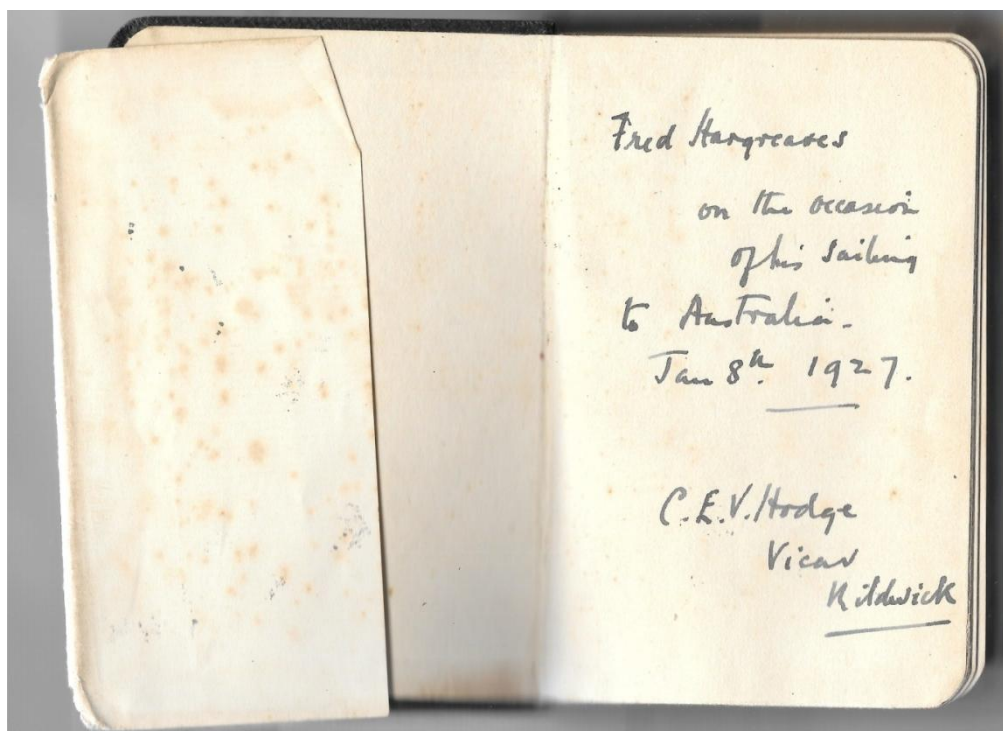 Fred Hargreaves
on the occasion
of his sailing
to Australia.
Jan 8th. 1927.
C.E.V. Hodge
Vicar
Kildwick